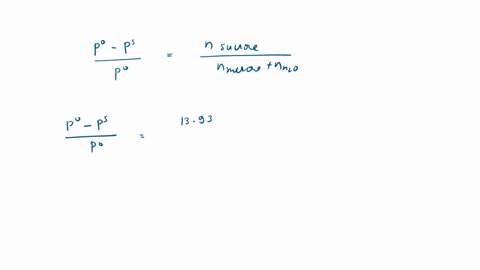 (p⁰ - pˢ) / p⁰ = n sucrose / (n sucrose + n H₂O)
(p⁰ - pˢ) / p⁰ = 13.93